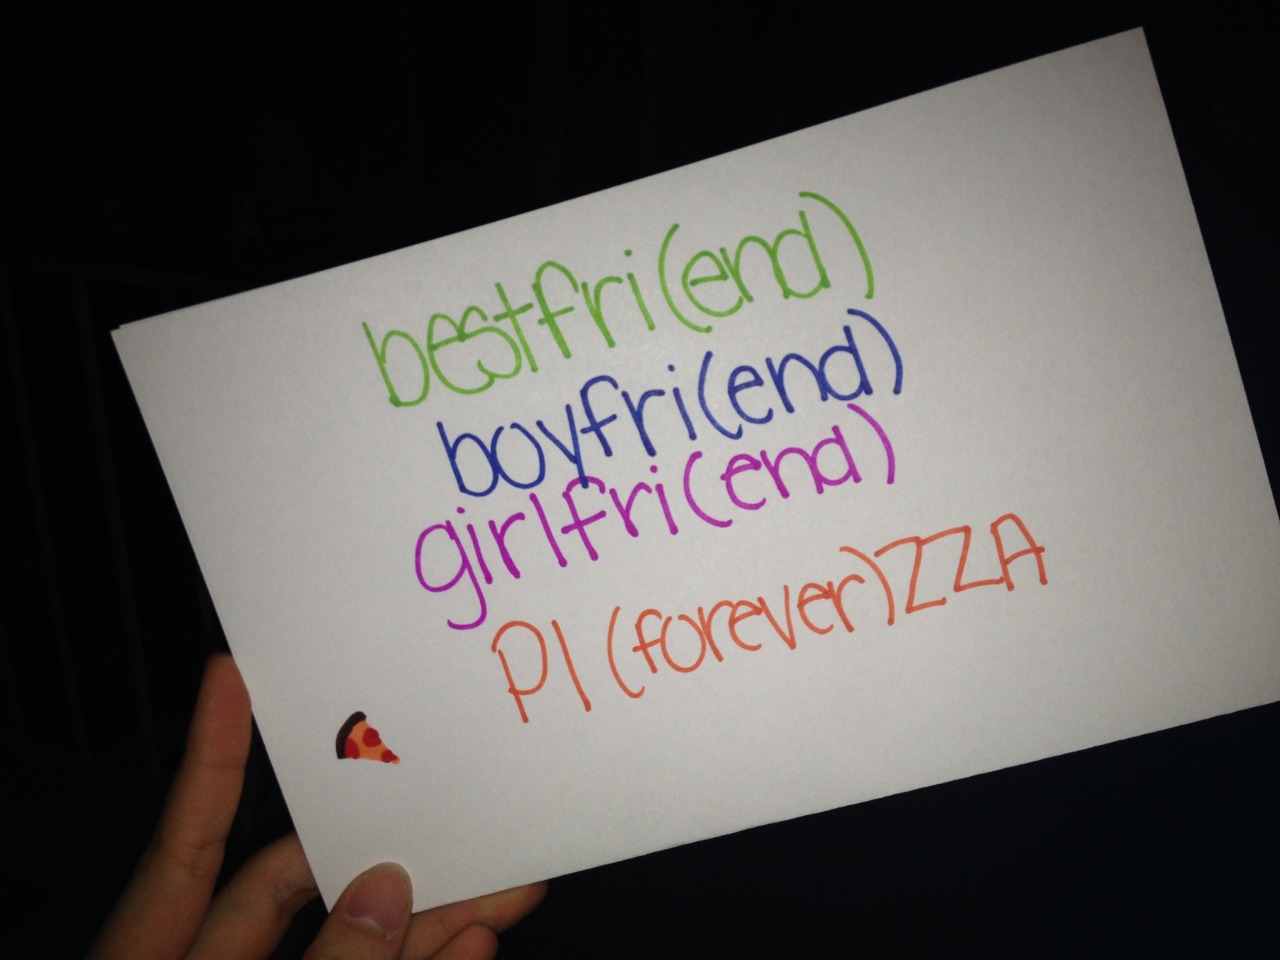 bestfri(end)
boyfri(end)
girlfri(end)
PI(forever)ZZA